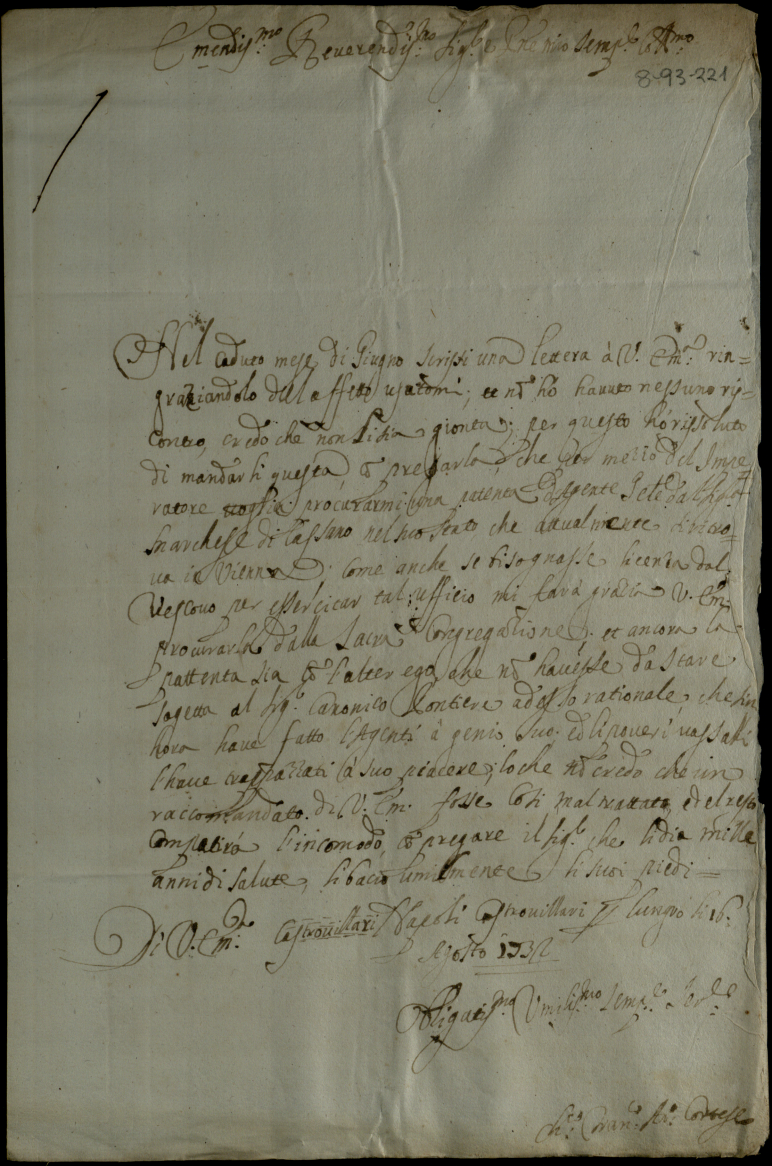 Emendis.mo Reverendis.mo Sig.r e
8-93-221
Nel caduto mese di Giugno scrissi una lettera à V. Em.a rin=
graziandolo dell affetto usatomi; et nõ hò havuto nessuno ris=
contro, credo che non li sia gionta; per questo hò rissoluto
di mandarli questa, e pregarla, che per mezzo del Impe=
ratore voglia procurarmi una patenta d'Agente
Marchese di Cassano nel suo stato che attualmente si ritro=
va in Vienna; come anche se bisognasse licenza dal
Vescovo per essercitar tal ufficio mi farà grazia V. Em.a
procurarla dalla Sacra Congregatione; et ancora la
pattenta sia cõ l'alter ego, che nõ havesse da stare
sogetta al Sig.r Canonico adesso rationale, che sin
hora have fatto l'Agenti à genio suo, ed li poveri vassalli
l'have trapazzati à suo piacere; loche nõ credo che un
raccomandato di V. Em. fosse così mal trattato, e del resto
compatirà l'incomodo, e pregare il Sig.re che li dia mille
anni di salute, li bacio umilmente li suoi piedi=
Di V. Em.a Castrovillari Napoli Castrovillari p Lungro li 16.
Agosto 1732
Obligatis.mo Umilis.mo semp.e Ser.e
Cortese